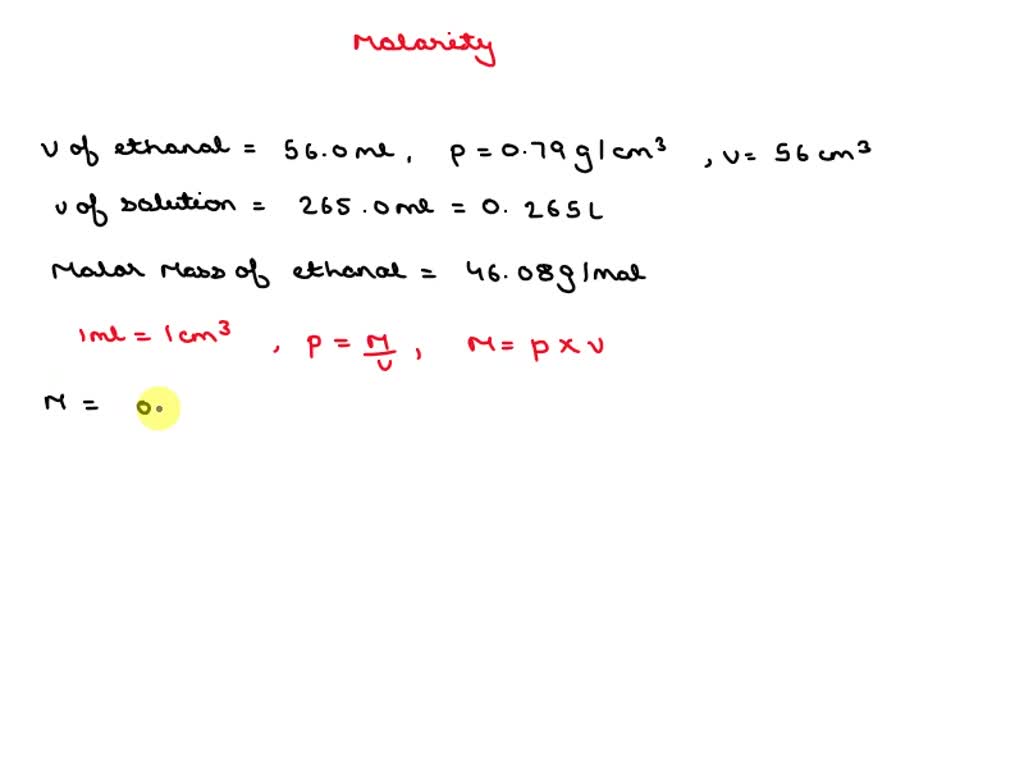 Molarity
V of ethanol = 56.0 ml, ρ = 0.79 g/cm³, v = 56 cm³
v of solution = 265.0 ml = 0.265 L
Molar Mass of ethanol = 46.08 g/mol
1 ml = 1 cm³, ρ = M/v, M = ρ × v
M = 0.